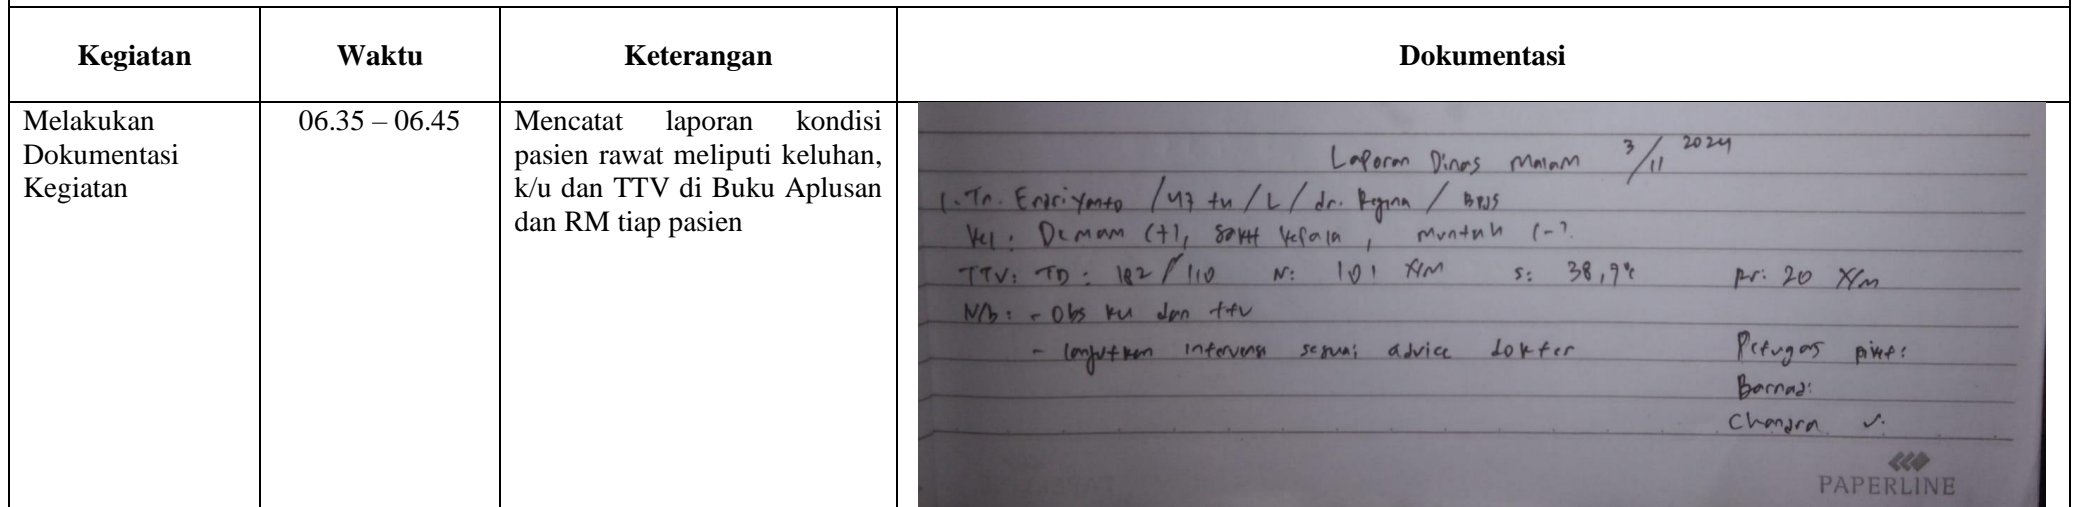 Kegiatan
Waktu
Keterangan
Dokumentasi
Melakukan
Dokumentasi
Kegiatan
06.35 – 06.45
Mencatat laporan kondisi
pasien rawat meliputi keluhan,
k/u dan TTV di Buku Aplusan
dan RM tiap pasien
Laporan Dinas Malam 3/11 2024
1. Tn. / 47 th / L / dr. Regina / BPJS
Kel: Demam (+), sakit kepala, muntah (-).
TTV: TD: 182/110 N: 101 x/m S: 38,9°c RR: 20 x/m
N/b: - Obs ku dan ttv
- lanjutkan intervensi sesuai advice dokter
Petugas piket:
Barnadi
Chandra
PAPERLINE